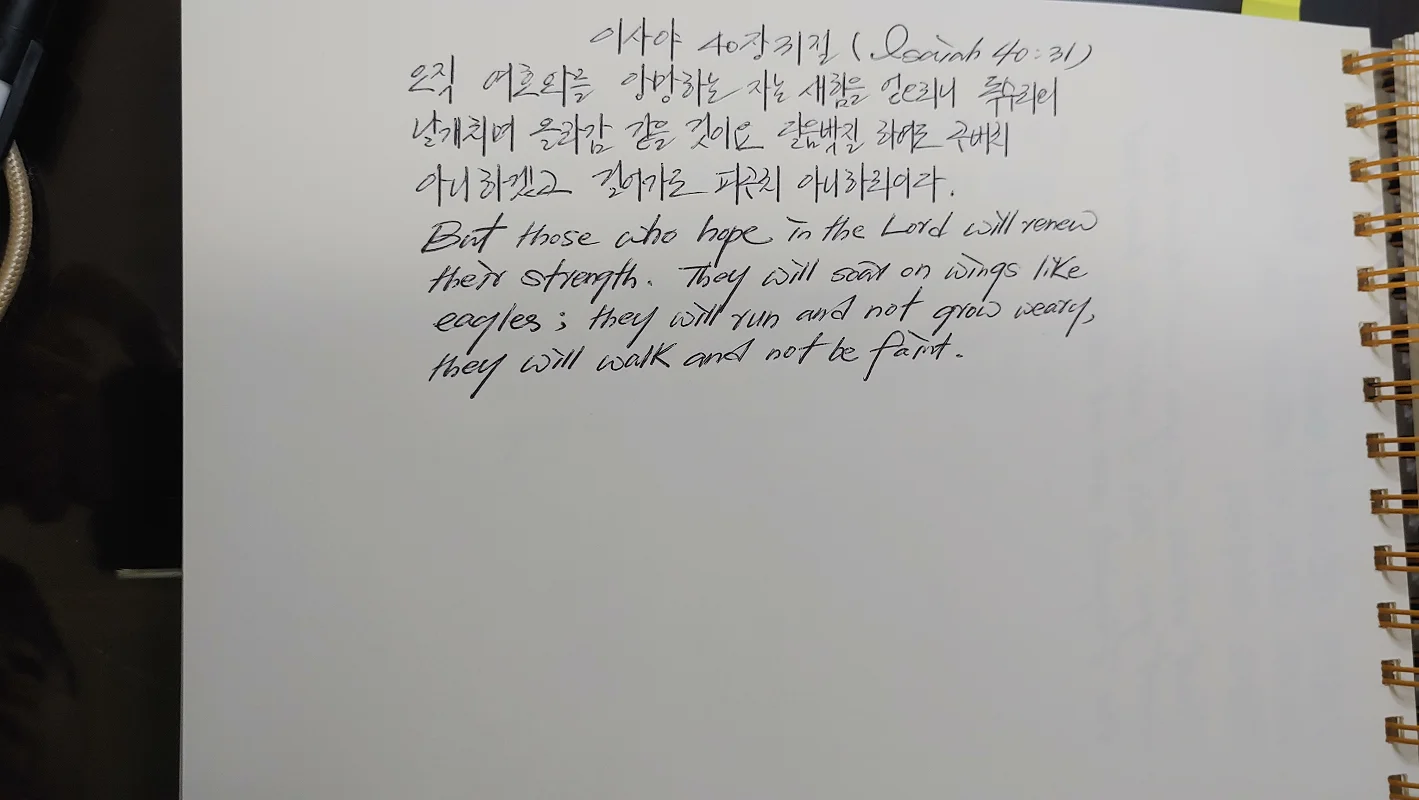 이사야 40장 31절 (Isaiah 40:31)
오직 여호와를 앙망하는 자는 새힘을 얻으리니 독수리의
날개치며 올라감 같을 것이요 달음박질 하여도 곤비치
아니하겠고 걸어가도 피곤치 아니하리이다.
But those who hope in the Lord will renew
their strength. They will soar on wings like
eagles; they will run and not grow weary,
they will walk and not be faint.